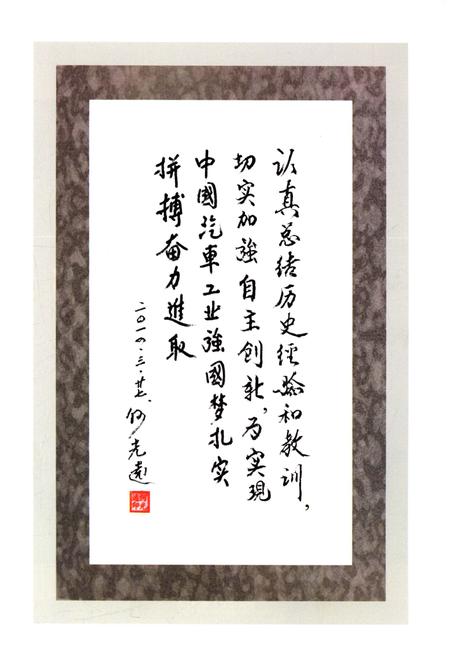 认真总结历史经验和教训，
切实加強自主创新，为实現
中國汽車工业強國梦扎实
拼搏奋力進取
二〇一四·三·廿七、何光遠